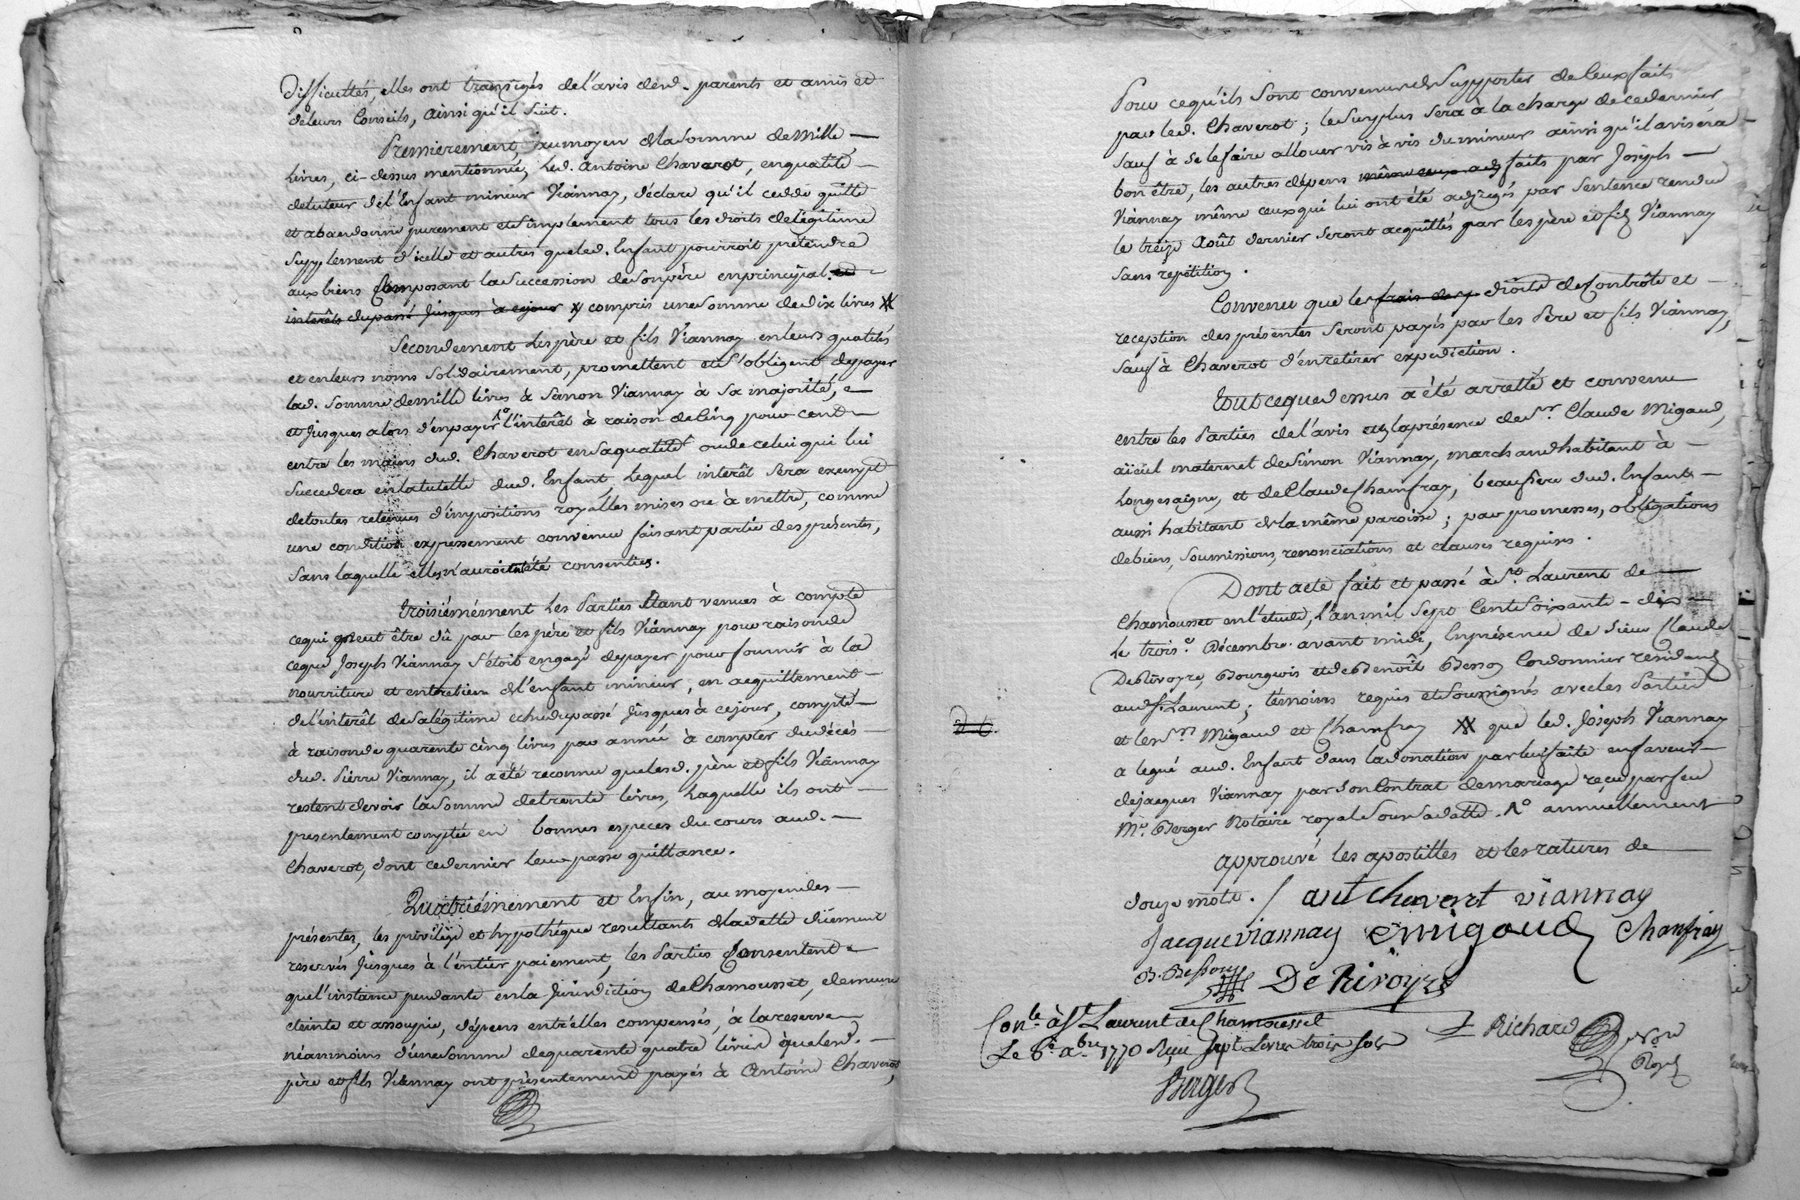 difficultés, elles ont transigés de l'avis desd. parents et amis et
de leurs Conseils, ainsi qu'il suit.
Premierement, au moyen de la somme de mille
livres, ci-dessus mentionnée, led. Antoine Chaverot, en qualité
de tuteur de l'Enfant mineur Viannay, déclare qu'il cedde quitte
et abandonne purement et simplement tous les droits de légitime
supplement d'icelle et autres que led. Enfant pourroit prétendre
aux biens Composant la succession de son père en principal et
interêts du passé jusques à ce jour X compris une somme de dix livres
Secondement Les père et fils Viannay en leurs qualités
et en leurs noms solidairement, promettent et s'obligent de payer
lad. somme de mille livres à Simon Viannay à sa majorité, e
et jusques alors d'en payer l'interêt à raison de Cinq pour Cent
entre les mains dud. Chaverot en sa qualité ou de celui qui lui
succedera en la tutelle dud. Enfant, Lequel interêt sera exempt
de toutes retenues d'impositions royalles mises ou à mettre, comme
une condition expressement convenue faisant partie des présentes,
sans laquelle elles n'auroient été consenties.
Troisiémement Les Parties étant venues à compte
ce qui peut être dû par les père et fils Viannay pour raison de
ce que Joseph Viannay s'étoit engagé de payer pour fournir à la
nourriture et entretien de l'enfant mineur, en acquittement
de l'interêt de sa légitime échu du passé jusques à ce jour, compte
à raison de quarente cinq livres par année à compter du décès
dud. Pierre Viannay, il a été reconnu que lesd. père et fils Viannay
restent devoir la somme de trente livres, Laquelle ils ont
presentement comptée en bonnes especes du cours aud.
Chaverot, dont ce dernier leur passe quittance.
Quatriémement et Enfin, au moyen des
présentes, les privilége et hypothéque resultants de la dette duement
reservés jusques à l'entier paiement, les Parties Consentent
que l'instance pendante en la Juridiction de Chamousset, demeure
éteinte et assoupie, dépens entr'elles compensés, à la reserve
néanmoins d'une somme de quarente quatre livres que lesd.
père et fils Viannay ont présentement payés à Antoine Chaverot,
Pour ce qu'ils sont convenus de supporter de leurs faits
par led. Chaverot; le surplus sera à la charge de ce dernier
sauf à se le faire allouer vis à vis du mineur ainsi qu'il avisera
bon être, les autres dépens même ceux faits par Joseph
Viannay même ceux qui lui ont été adjugés par sentence rendue
le treize Août dernier seront acquittés par les père et fils Viannay
sans répétition.
Convenu que les frais de droits de Contrôle et
reception des présentes seront payés par les Père et fils Viannay,
sauf à Chaverot d'en retirer expedition.
Tout ce que dessus a été arretté et convenu
entre les Parties de l'avis et en la présence de Sr. Claude Migaud,
aïeul maternel de Simon Viannay, marchand habitant à
Longesaigne, et de Claude Chamfray, beaufrere dud. Enfant
aussi habitant de la même paroisse; par promesses, obligations
de biens, soumissions, renonciations et clauses requises.
Dont acte fait et passé à St. Laurent de
Chamousset en l'étude, l'an mil sept Cent soixante-dix
le trois e. Décembre avant midi, En présence de Sieur Claude
DeRivoyre, Bourgeois et de Benoît Besson Cordonnier residents
aud. St Laurent; témoins requis et soussignés avec les Parties
et lesd. Srs Migaud et Chamfray X que led. Joseph Viannay
a legué aud. Enfant dans la donation par lui faite en faveur
de Jacques Viannay par son Contrat de mariage reçu par feu
Me. Berger Notaire royal sous sa datte. annuellement
approuvé les apostilles et les ratures de
douze mots. / ant Chaverot viannay
Jacque viannay C migaud Chanfray
B. Besson De Rivoyre
Conlé à St Laurent de Chamousset
Le 6e xbre 1770 Reçu sept Livres trois sols
Richard Nore Royl
Berger